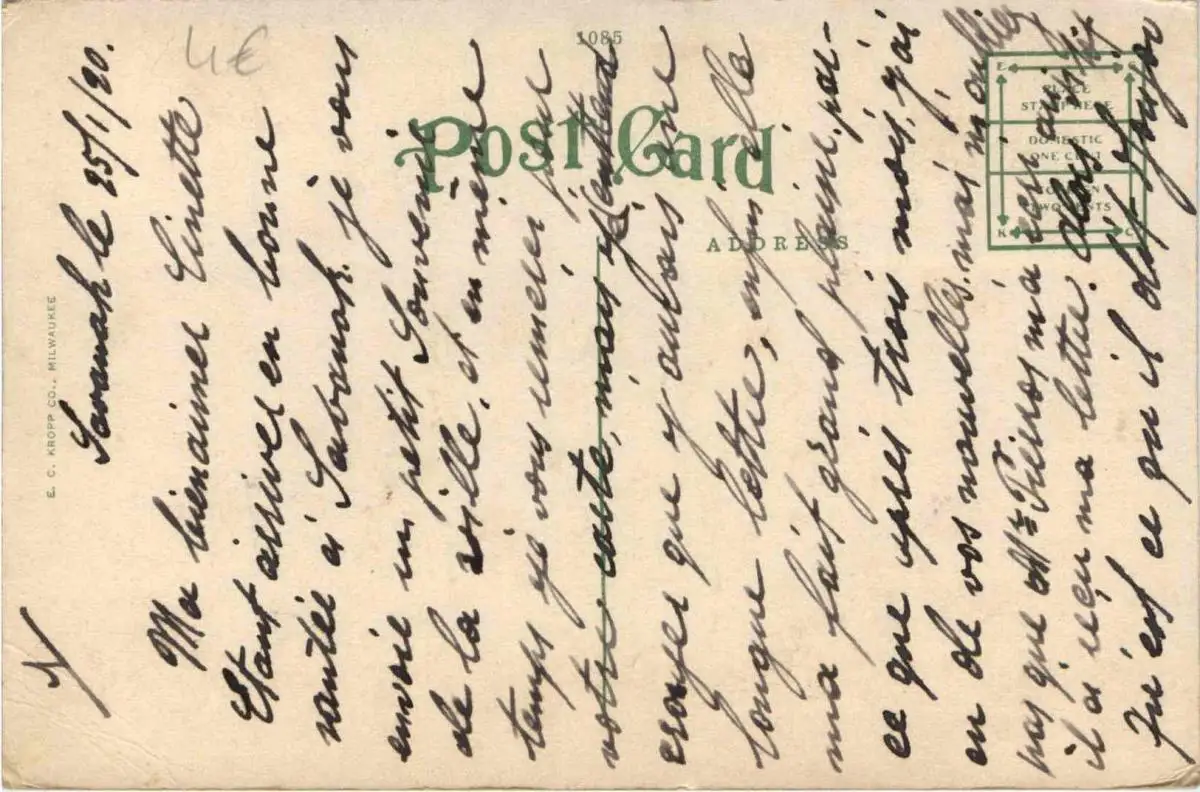 1085
4€
Post Card
ADDRESS
PLACE
STAMP HERE
DOMESTIC
ONE CENT
FOREIGN
TWO CENTS
E. C. KROPP CO., MILWAUKEE
Savanah le 25/1/20.
Ma bienaimer Linette
Etant arriver en bonne
santée a Savanah. je vous
envoie un petit Souvenir
de la ville, et en même
temps je vous remercier pour
votre carte, mais j'
esseyer que j aurais une
longue lettre, enfin elle
ma fait grand plaisir, par-
ce que après trois mois, j'ai
en de vos nouvelles, mais n'oublier
pas que Mr Pierros ma
il a reçu ma lettre. Alors
est ce qu il